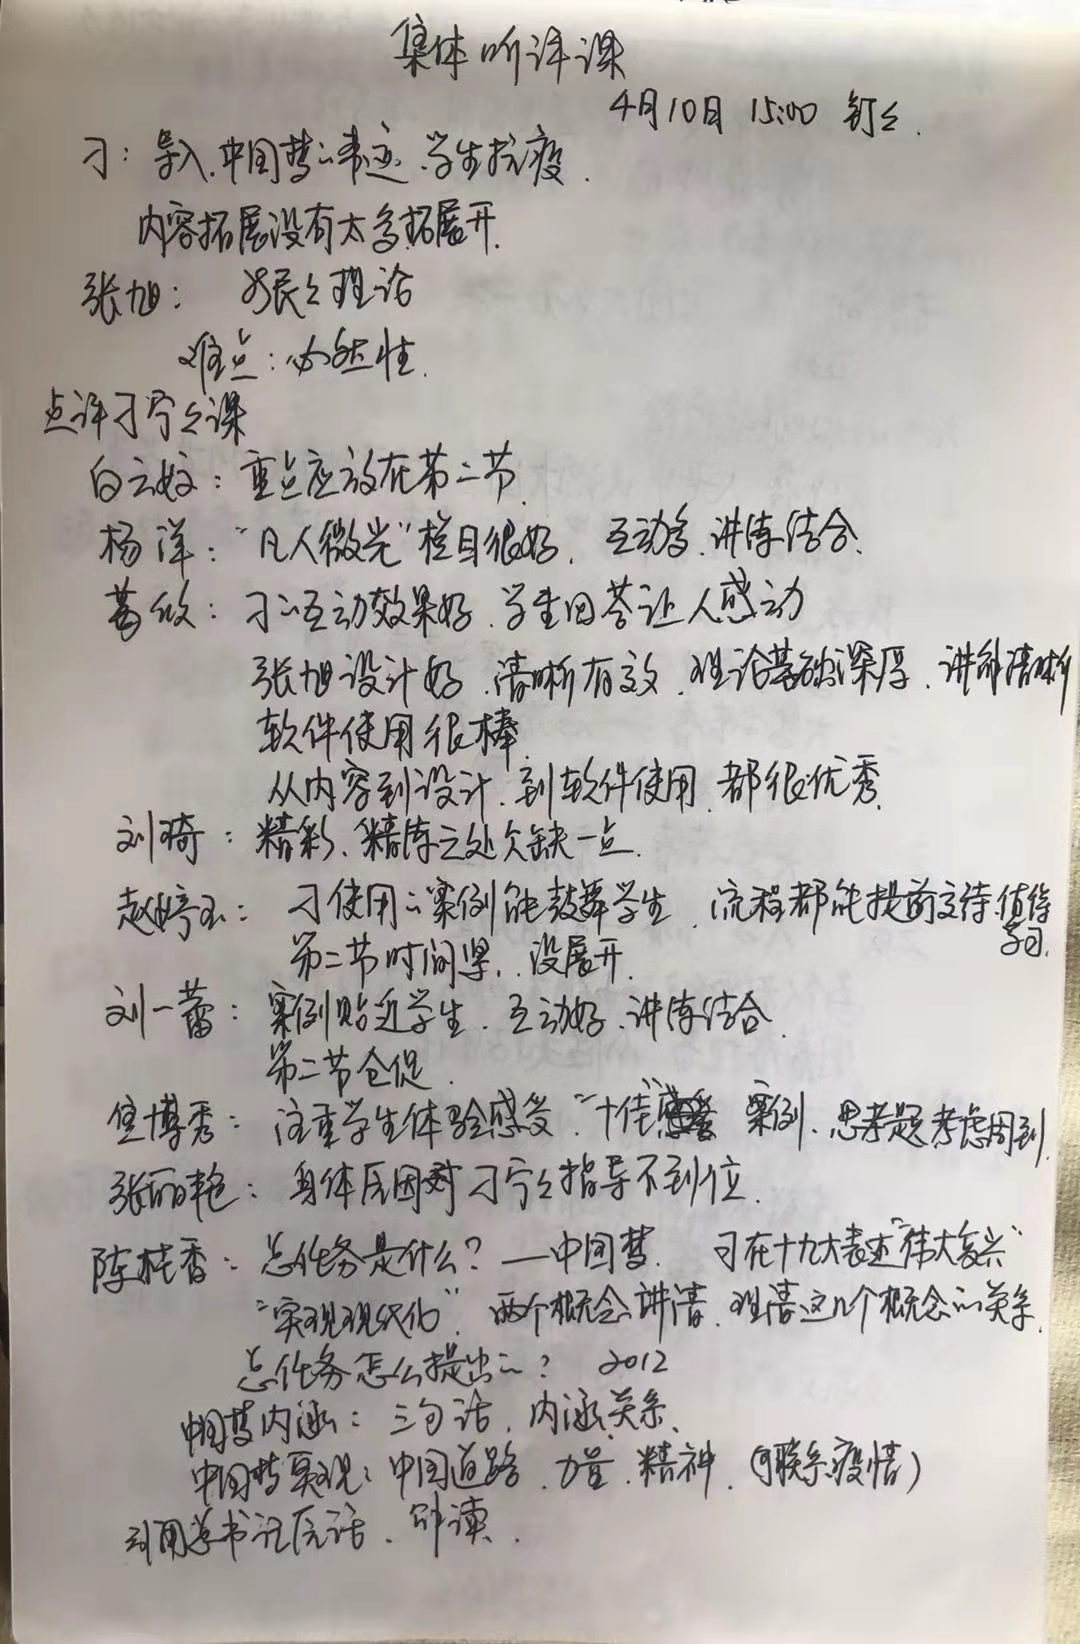 集体听评课
4月10日 15:00 钉钉.
刁: 导入.中国梦的事迹.学生抗疫.
内容拓展没有太多拓展开.
张旭: 理论
难点:必然性.
点评刁宁宁课
白云姣: 重点应放在第二节.
杨洋: “凡人微光”栏目很好. 互动多.讲练结合.
葛欣: 刁的互动效果好.学生回答让人感动
张旭设计好.清晰有效.理论基础深厚.讲解清晰
软件使用很棒.
从内容到设计.到软件使用.都很优秀.
刘琦: 精彩、精练之处欠缺一点.
赵婷玉: 刁使用的案例能鼓舞学生.流程都能提前交待.值得学习.
第二节时间紧.没展开.
刘一蕾: 案例贴近学生.互动好.讲练结合.
第二节仓促.
博秀: 注重学生体验感受.“十佳” 案例.思考题考虑周到.
张丽艳: 身体原因对刁宁宁指导不到位.
陈桂香: 总任务是什么?—中国梦. 习在十九大表述“伟大复兴”
“实现现代化”.两个概念讲清.理清这几个概念的关系.
总任务怎么提出的? 2012
中国梦内涵: 三句话.内涵关系.
中国梦实现: 中国道路.力量.精神.(可联系疫情)
引用总书记原话.解读.